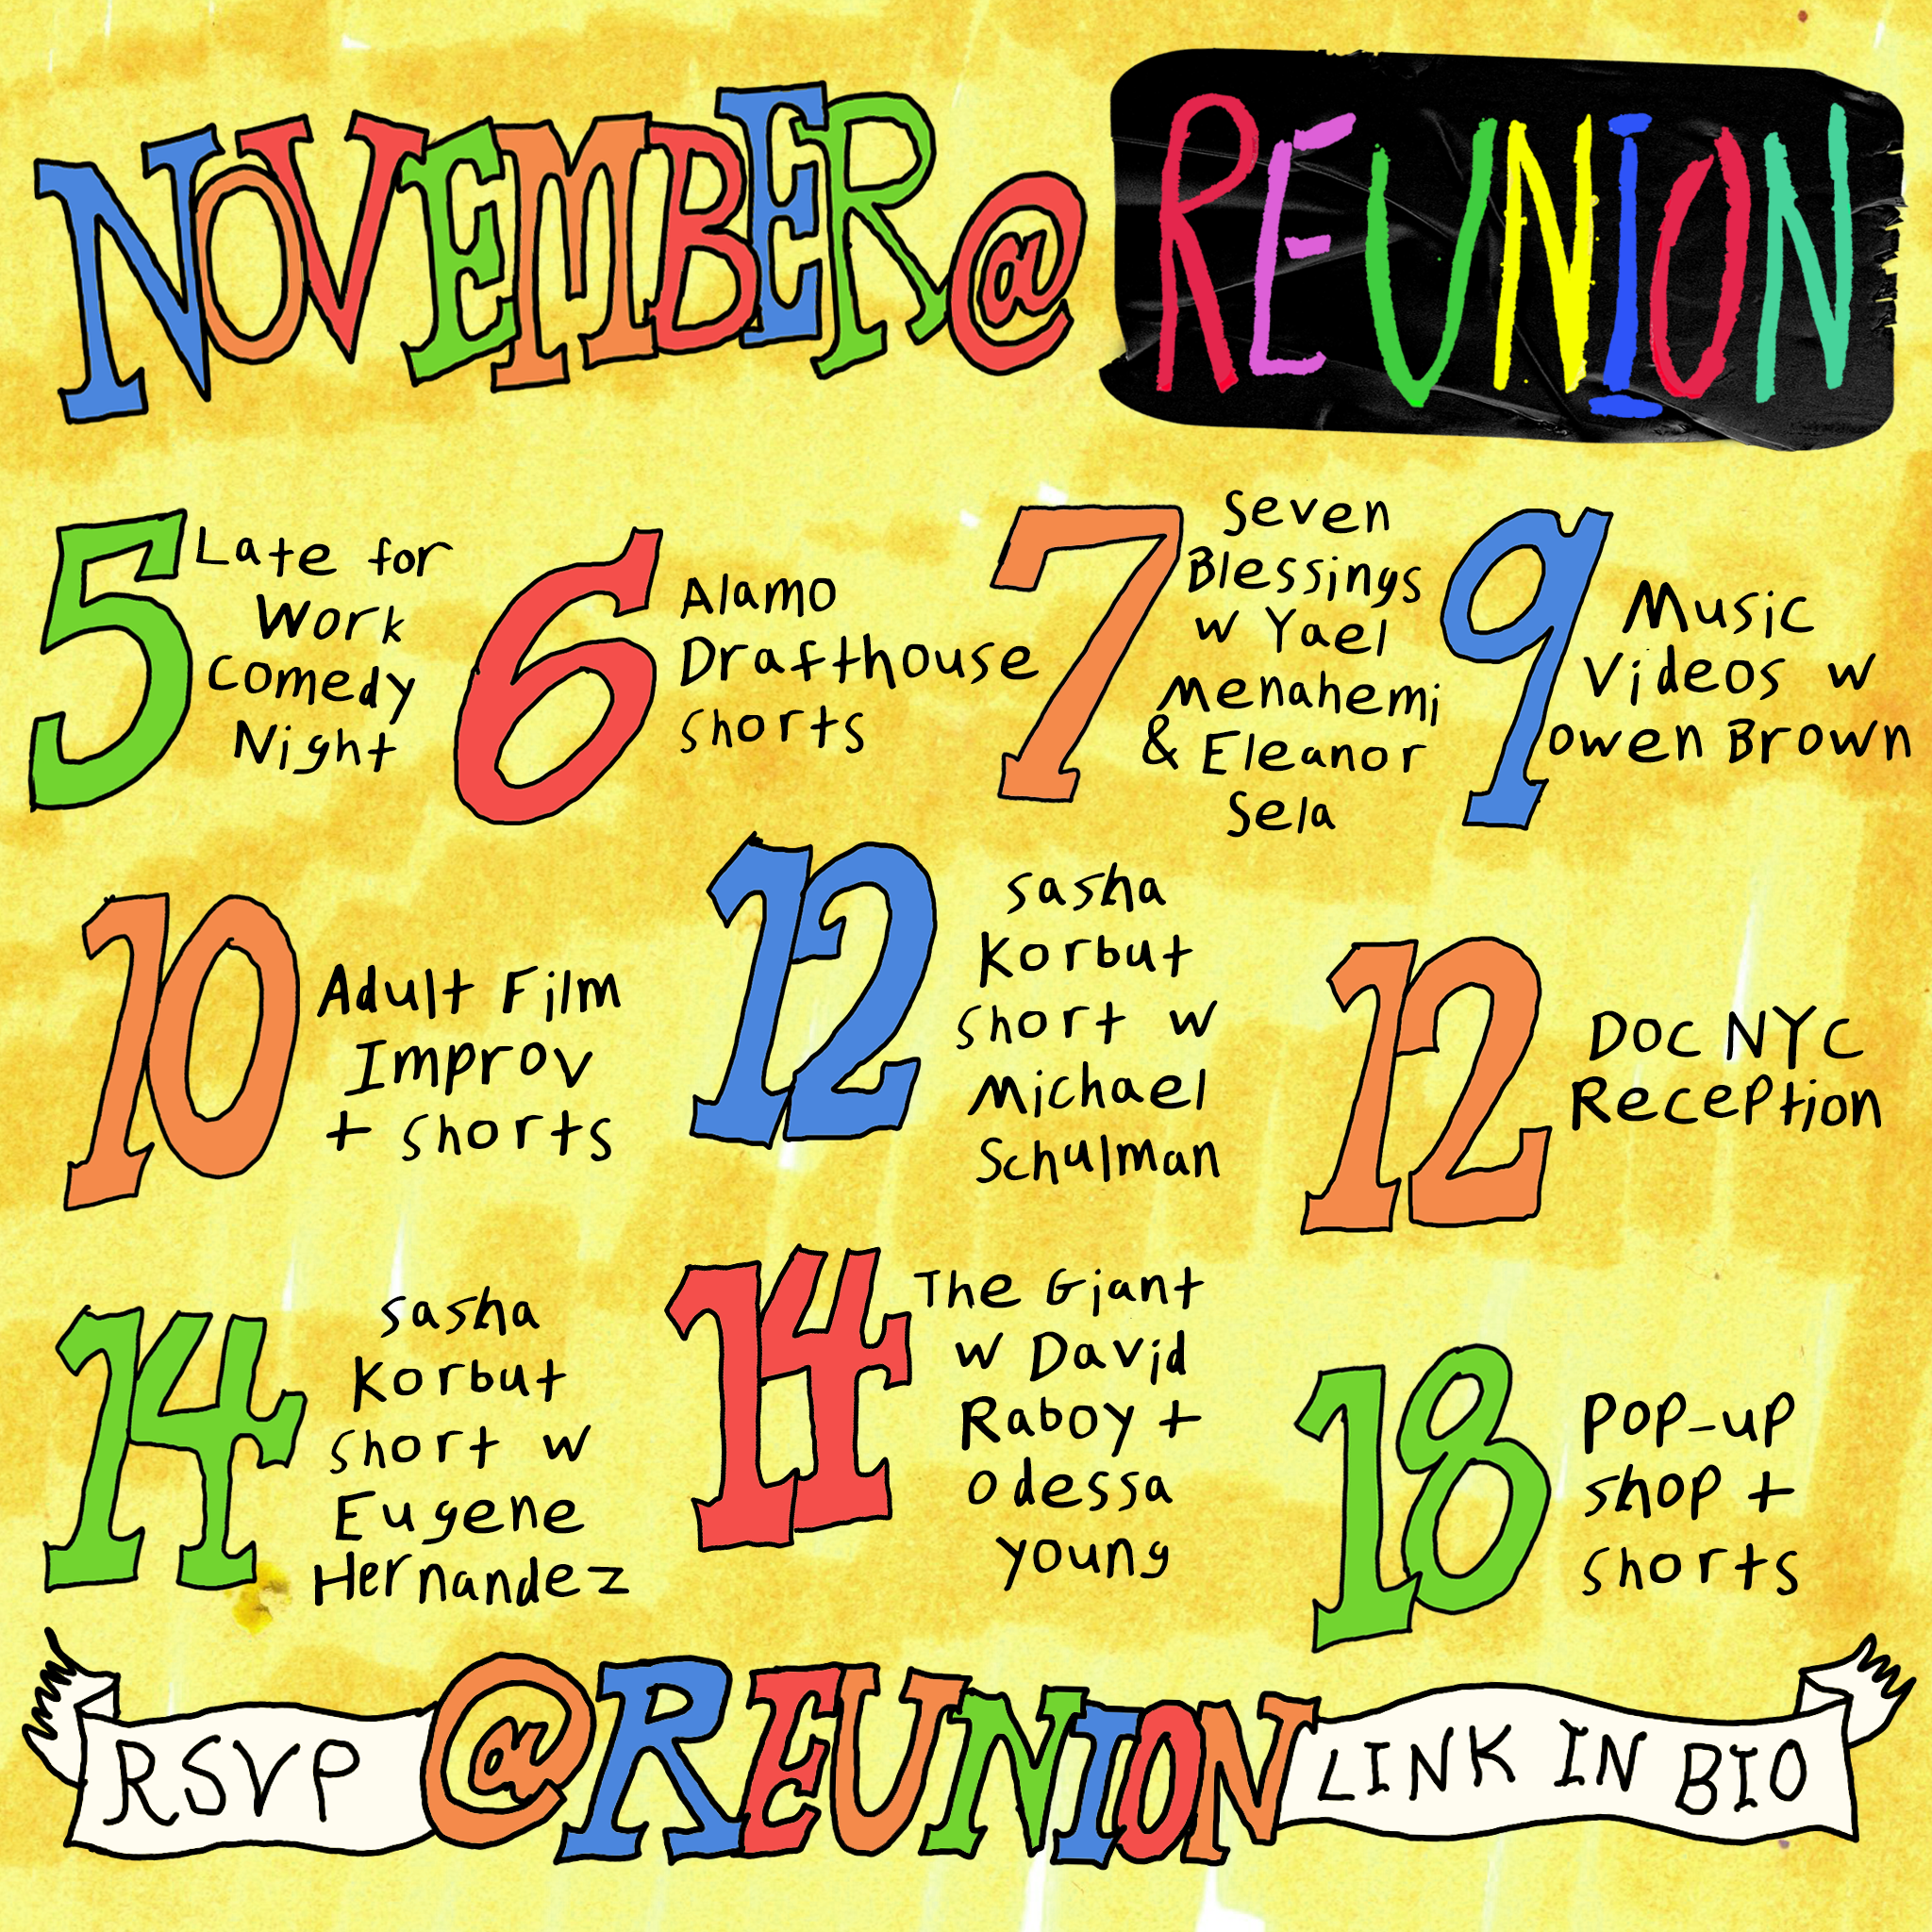 NOVEMBER@
REUNION
5
Late for
Work
Comedy
Night
6
Alamo
Drafthouse
shorts
7
Seven
Blessings
w Yael
Menahemi
& Eleanor
Sela
9
Music
Videos w
owen Brown
10
Adult Film
Improv
+ shorts
12
sasha
Korbut
short w
Michael
Schulman
12
DOC NYC
Reception
14
sasha
Korbut
short w
Eugene
Hernandez
14
The Giant
w David
Raboy +
odessa
young
18
Pop-up
shop +
shorts
RSVP @REUNION LINK IN BIO